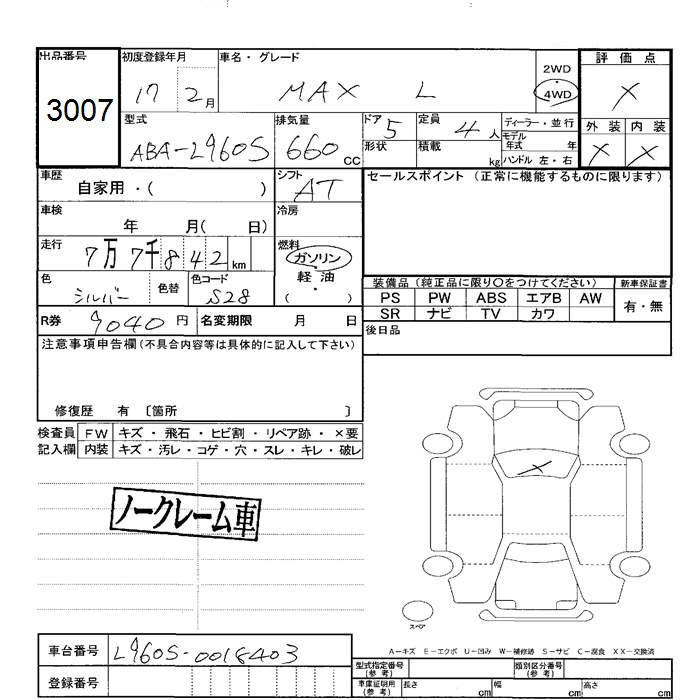 出品番号 初度登録年月 車名・グレード 2WD 評価点
3007 17 2月 MAX L 4WD ×
型式 排気量 ドア 定員 ディーラー・並行 外装 内装
ABA-L960S 660cc 5 4人 モデル年式 年 × ×
形状 積載 kg ハンドル 左・右
車歴 自家用・( ) シフト AT セールスポイント (正常に機能するものに限ります)
車検 年 月( 日) 冷房
走行 7万7千842km 燃料 ガソリン
軽油
色 シルバー 色替 色コード S28 ・( )
装備品 (純正品に限り〇をつけてください) 新車保証書
PS PW ABS エアB AW 有・無
SR ナビ TV カワ
R券 9040円 名変期限 月 日 後日品
注意事項申告欄(不具合内容等は具体的に記入して下さい)
修復歴 有 〔箇所 〕
検査員 FW キズ・飛石・ヒビ割・リペア跡・×要
記入欄 内装 キズ・汚レ・コゲ・穴・スレ・キレ・破レ
×
ノークレーム車
スペア
A−キズ E−エクボ U−凹み W−補修跡 S−サビ C−腐食 XX−交換済
車台番号 L960S-0018403 型式指定番号(参考) 類別区分番号(参考)
登録番号 車庫証明用(参考) 長さ cm 幅 cm 高さ cm